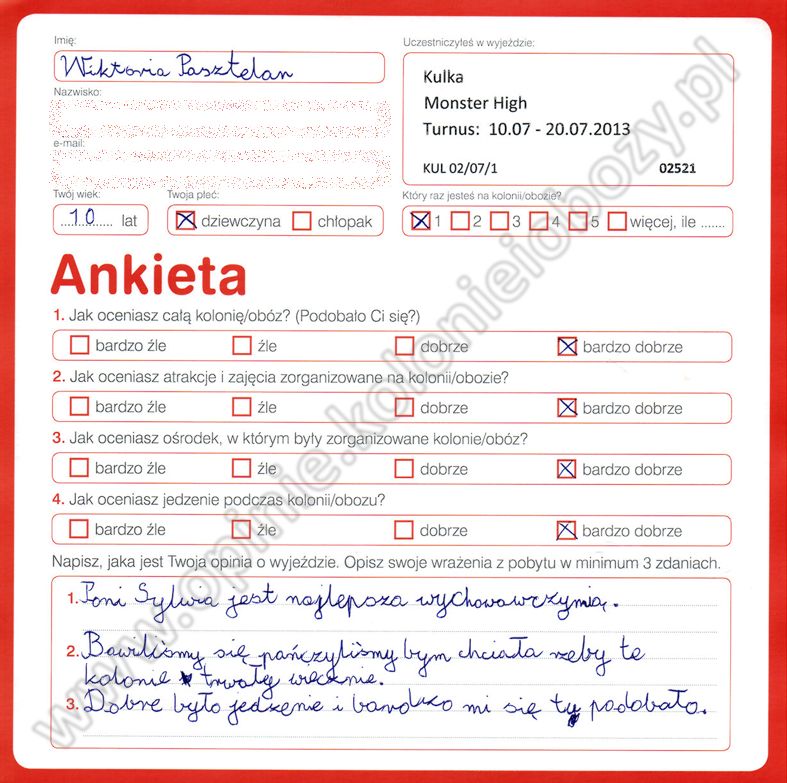 Imię:
Wiktoria Pasztelan
Nazwisko:
e-mail:
Twój wiek:
10 lat
Twoja płeć:
dziewczyna chłopak
Uczestniczyłeś w wyjeździe:
Kulka
Monster High
Turnus: 10.07 - 20.07.2013
KUL 02/07/1 02521
Który raz jesteś na kolonii/obozie?
1 2 3 4 5 więcej, ile .......
Ankieta
1. Jak oceniasz całą kolonię/obóz? (Podobało Ci się?)
bardzo źle źle dobrze bardzo dobrze
2. Jak oceniasz atrakcje i zajęcia zorganizowane na kolonii/obozie?
bardzo źle źle dobrze bardzo dobrze
3. Jak oceniasz ośrodek, w którym były zorganizowane kolonie/obóz?
bardzo źle źle dobrze bardzo dobrze
4. Jak oceniasz jedzenie podczas kolonii/obozu?
bardzo źle źle dobrze bardzo dobrze
Napisz, jaka jest Twoja opinia o wyjeździe. Opisz swoje wrażenia z pobytu w minimum 3 zdaniach.
1. Pani Sylwia jest najlepsza wychowawrzynią.
2. Bawiliśmy się, pańczyliśmy bym chciała rzeby te
kolonie trwały wiecznie.
3. Dobre było jedzenie i bardzo mi się tu podobało.
www.opinie.kolonieiobozy.pl